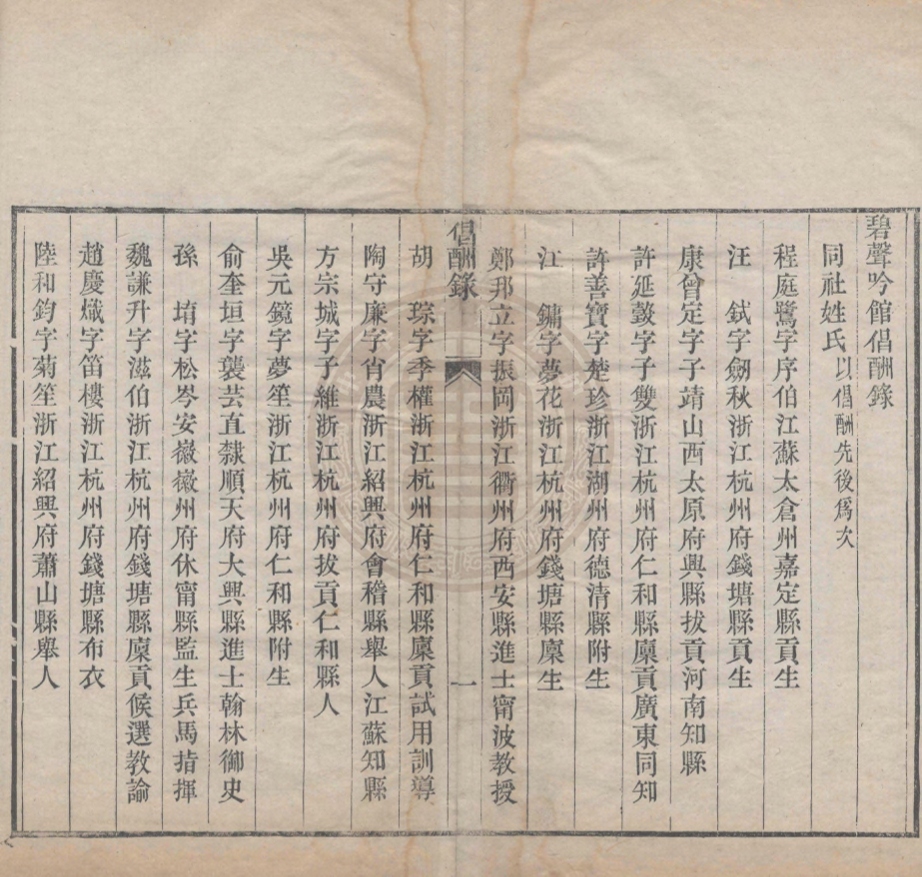 碧聲吟館倡酬錄
同社姓氏以倡酬先後爲次
程庭鷺字序伯江蘇太倉州嘉定縣貢生
汪　鉽字劒秋浙江杭州府錢塘縣貢生
康曾定字子靖山西太原府興縣拔貢河南知縣
許延瑴字子雙浙江杭州府仁和縣廩貢廣東同知
許善寶字楚珍浙江湖州府德清縣附生
江　鏞字夢花浙江杭州府錢塘縣廩生
鄭邦立字振岡浙江衢州府西安縣進士甯波教授
倡酬錄　一
胡　琮字季權浙江杭州府仁和縣廩貢試用訓導
陶守廉字肖農浙江紹興府會稽縣舉人江蘇知縣
方宗城字子維浙江杭州府拔貢仁和縣人
吳元鏡字夢笙浙江杭州府仁和縣附生
俞奎垣字襲芸直隸順天府大興縣進士翰林御史
孫　堉字松岑安徽徽州府休甯縣監生兵馬指揮
魏謙升字滋伯浙江杭州府錢塘縣廩貢候選教諭
趙慶熾字笛樓浙江杭州府錢塘縣布衣
陸和鈞字菊笙浙江紹興府蕭山縣舉人